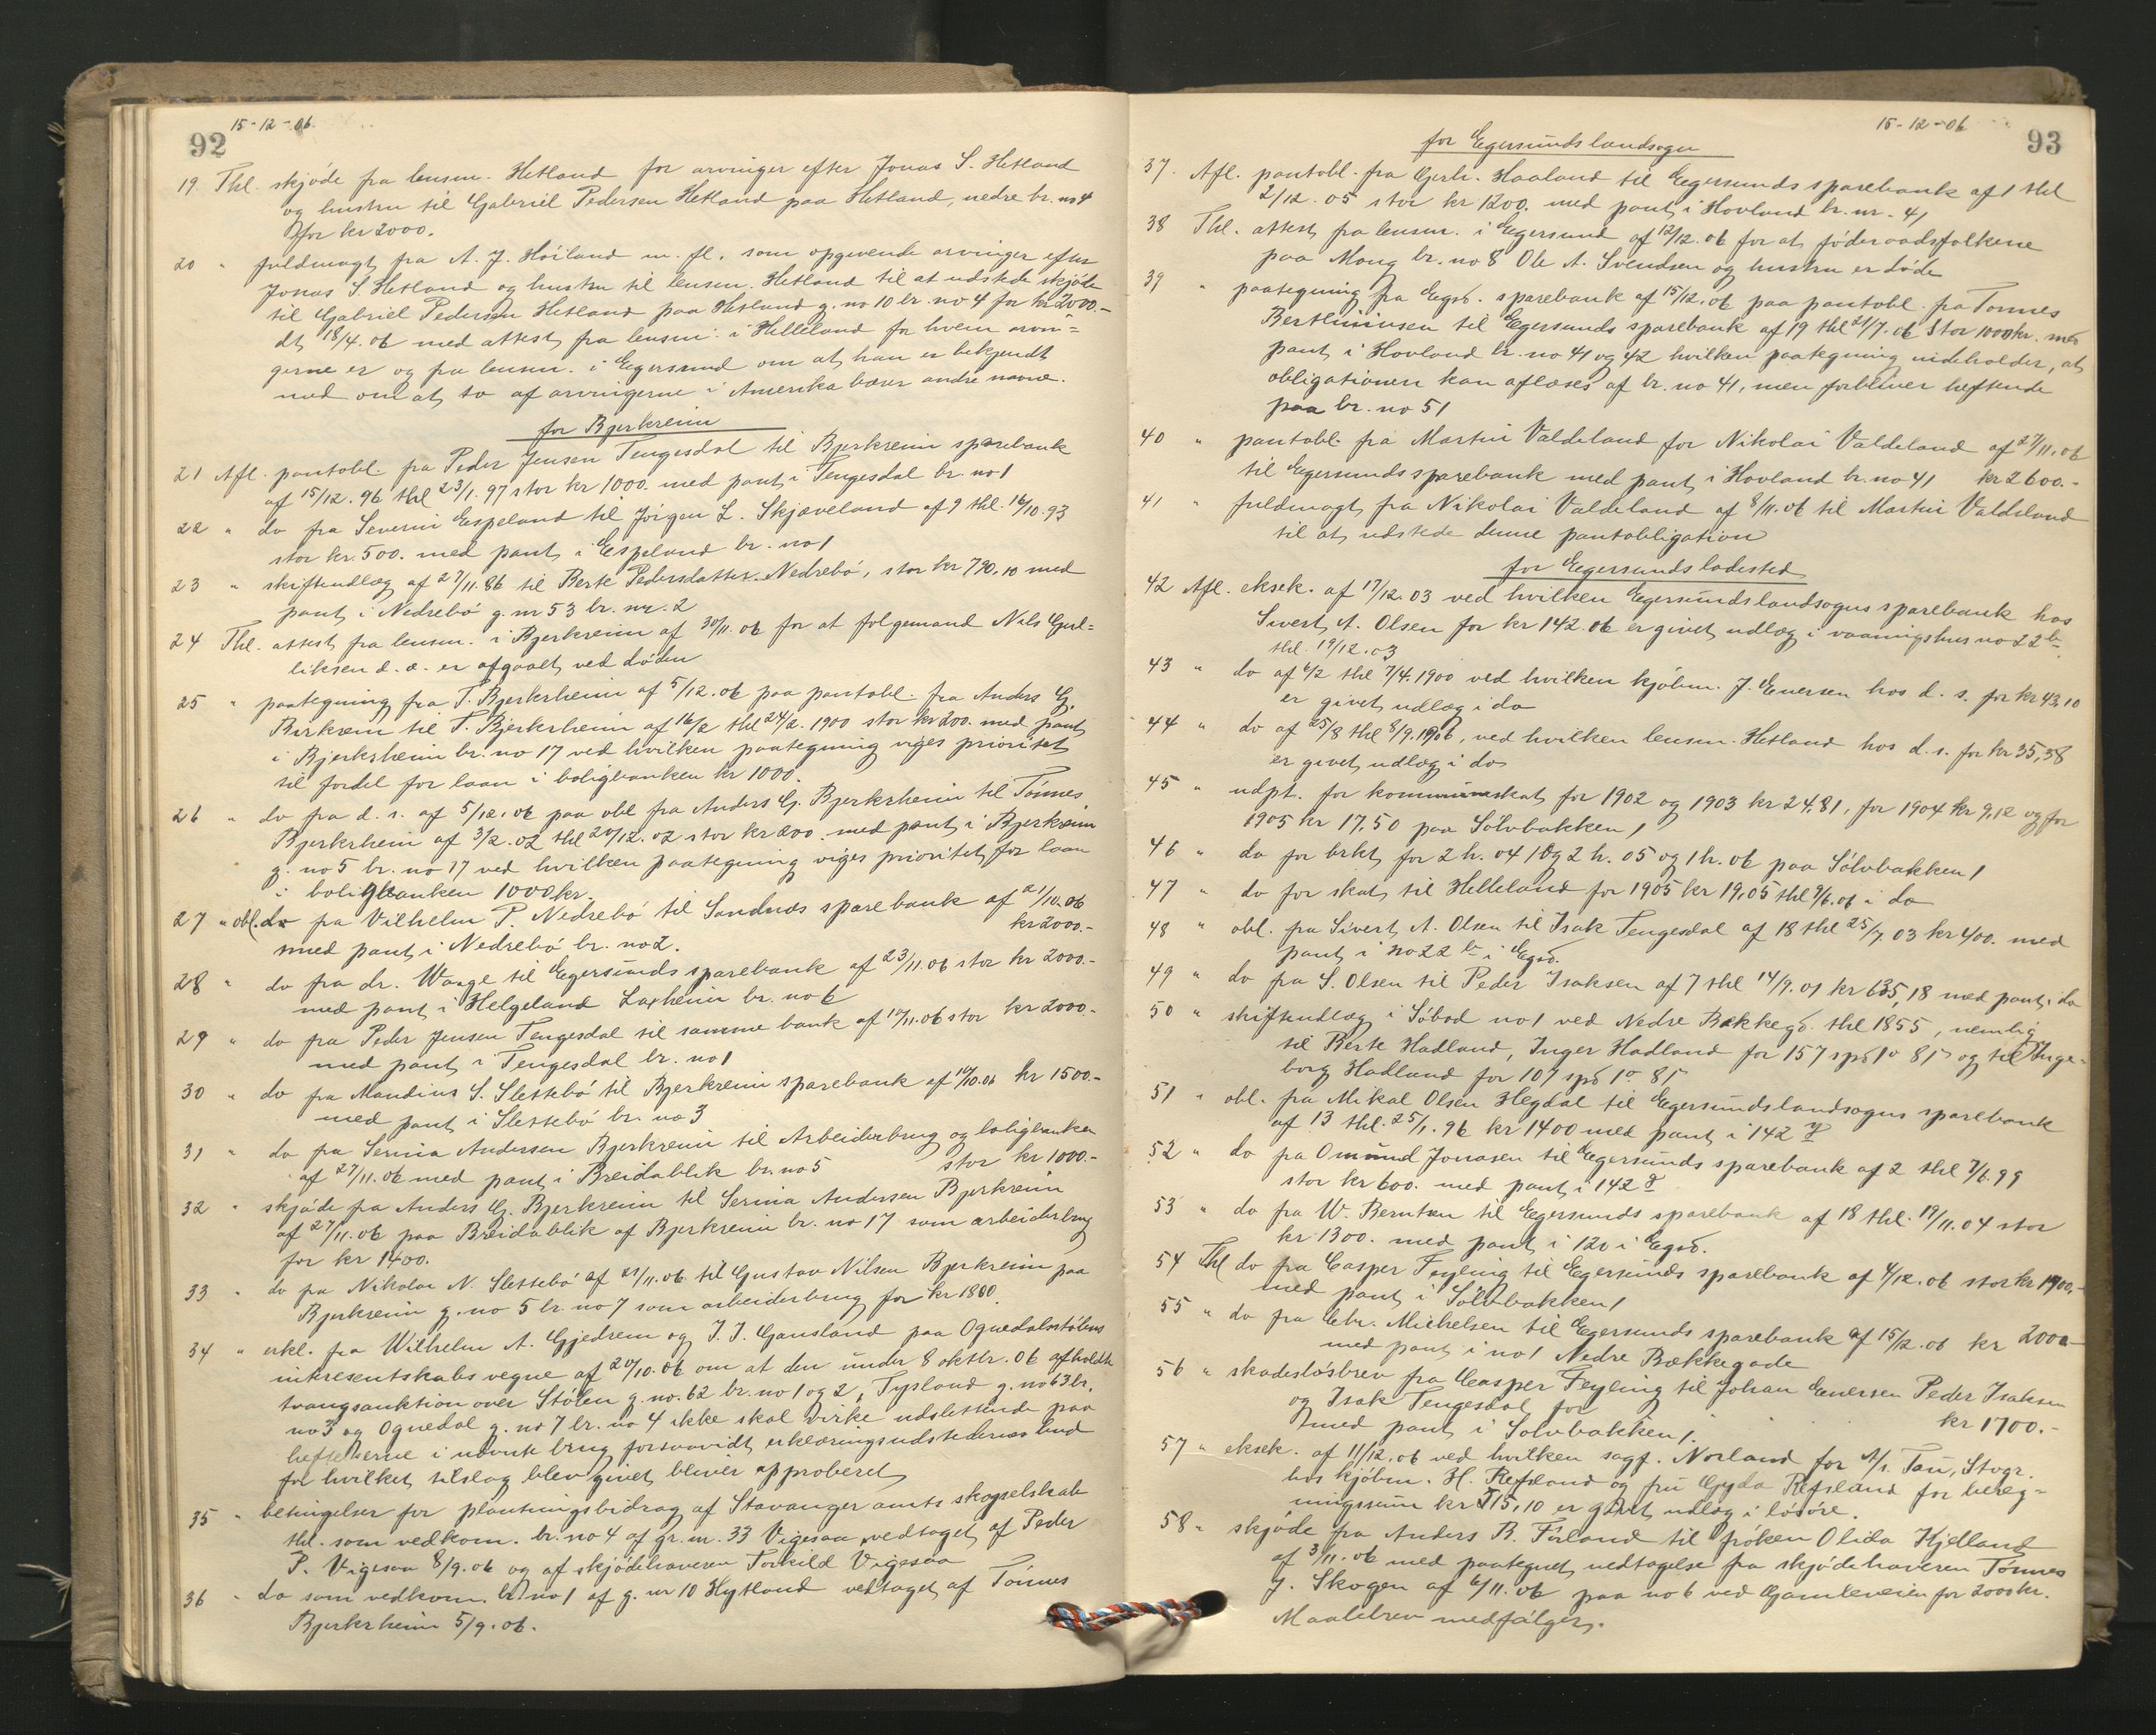 92
15-12-06.
19. Thl. skjöde fra lensm. Hetland for arvinger efter Jonas S. Hetland
og hustru til Gabriel Pedersen Hetland paa Hetland, nedre br. no 4
for kr 2000.
20 " fuldmagt fra A. J. Höiland m. fl. som opgivende arvinger efter
Jonas S. Hetland og hustru til lensm. Hetland til at udstede skjöde
til Gabriel Pedersen Hetland paa Hetland g. no 10 br. no 4 for kr 2000.-
dt. 18/4. 06 med attest fra lensm. i Helleland for hvem arvin=
gerne er og fra lensm. i Egersund om at han er bekjendt
med om at to af arvingerne i Amerika bærer andre navne.
for Bjerkreim
21 Afl. pantobl. fra Peder Jensen Tengesdal til Bjerkreim sparebank
af 15/12. 96 thl 23/1. 97 stor kr 1000. med pant i Tengesdal br. no 1
22 " do fra Severin Espeland til Jörgen L. Skjæveland af 9 thl. 16/10. 93
stor kr. 500. med pant i Espeland br. no 1
23 " skifteudlæg af 27/11. 86 til Berte Pedersdatter Nedrebö, stor kr 790.10 med
pant i Nedrebö g. nr 53 br. nr. 2
24 Thl. attest fra lensm. i Bjerkreim af 30/11. 06 for at folgemand Nils Gul=
liksen d. æ. er afgaaet ved döden
25 " paategning fra T. Bjerkrheim af 5/12. 06 paa pantobl. fra Anders G.
Birkrem til T. Bjerkrheim af 16/2 thl 24/2. 1900 stor kr 200. med pant
i Bjerkrheim br. no 17 ved hvilken paategning viges prioritet
til fordel for laan i boligbanken kr 1000.
26 " do fra d. s. af 5/12. 06 paa obl fra Anders G. Bjerkrheim til Tönnes
Bjerkrheim af 3/2. 02 thl 20/12. 02 stor kr 200. med pant i Bjerkreim
g. no 5 br. no 17 ved hvilken paategning viges prioritet for laan
i boligbanken 1000 kr.
27 " obl. do fra Vilhelm P. Nedrebö til Sandnæs sparebank af 21/10. 06
med pant i Nedrebö br. no 2. kr 2000.-
28 " do fra dr. Waage til Egersunds sparebank af 23/11. 06 stor kr 2000.-
med pant i Helgeland Laxheim br. no 6
29 " do fra Peder Jensen Tengesdal til samme bank af 17/11. 06 stor kr 2000.-
med pant i Tengesdal br. no 1
30 " do fra Mandius S. Slettebö til Bjerkreim sparebank af 19/10. 06 kr 1500.-
med pant i Slettebö br. no 3
31 " do fra Serina Andersen Bjerkreim til Arbeiderbrug og boligbanken
af 27/11. 06 med pant i Breidablik br. no 5 stor kr 1000.-
32 " skjöde fra Anders G. Bjerkreim til Serina Andersen Bjerkreim
af 27/11. 06 paa Breidablik af Bjerkreim br. no 17 som arbeiderbrug
for kr 1400.
33 " do fra Nikolai N. Slettebö af 21/11. 06 til Gustav Nilsen Bjerkreim paa
Bjerkreim g. no 5 br. no 7 som arbeiderbrug for kr 1800.
34 " erkl. fra Wilhelm A. Gjedrem og J. J. Gausland paa Ognedalsstölens
interesentskabs vegne af 20/10. 06 om at den under 8 oktbr. 06 afholdte
tvangsauktion over Stölen g. no. 62 br. no 1 og 2, Tysland g. no 63 br.
no 3 og Ognedal g. no 7 br. no 4 ikke skal virke udslettende paa
heftelserne i nævnte brug forsaavidt erklæringsudstedernes bud
for hvilket tilslag blev givet bliver approberet
35 " betingelser for plantningsbidrag af Stavanger amts skogselskab
thl. som vedkom. br. no 4 af gr. nr. 33 Vigesaa vedtaget af Peder
P. Vigesaa 8/9. 06 og af skjödehaveren Torkild Vigesaa
36 " do som vedkom. br. no 1 af g. nr 10 Hytland vedtaget af Tönnes
Bjerkrheim 5/9. 06.
15-12-06
93
for Egersunds landsogn
37. Afl. pantobl. fra Gerh. Haaland til Egersunds sparebank af 1 thl
2/12. 05 stor kr 1200. med pant i Hovland br. nr. 41
38 Thl. attest fra lensm. i Egersund af 12/12. 06 for at föderaadsfolkene
paa Mong br. no 8 Ole A. Svendsen og hustru er döde
39 " paategning fra Egsd. sparebank af 15/12. 06 paa pantobl. fra Tönnes
Berthinsen til Egersunds sparebank af 19 thl 21/7. 06 stor 1000 kr. med
pant i Hovland br. no 41 og 42 hvilken paategning indeholder, at
obligationen kan aflæses af br. no 41, men forbliver heftende
paa br. no 51
40 " pantobl. fra Martin Valdeland for Nikolai Valdeland af 27/11. 06
til Egersunds sparebank med pant i Hovland br. no 41 kr 2600.-
41 " fuldmagt fra Nikolai Valdeland af 8/11. 06 til Martin Valdeland
til at udstede denne pantobligation
for Egersunds ladested
42 Afl. eksek. af 17/12. 03 ved hvilken Egersunds landsogns sparebank hos
Sivert A. Olsen for kr 142.06 er givet udlæg i vaaningshus no 22 b
thl. 19/12. 03
43 " do af 6/2 thl 7/4. 1900 ved hvilken kjöbm. J. Enersen hos d. s. for kr 43,10
er givet udlæg i do
44 " do af 25/8 thl 8/9. 1906, ved hvilken lensm. Hetland hos d. s. for kr 35,38
er givet udlæg i do
45 " udpt. for kommuneskat for 1902 og 1903 kr 24,81, for 1904 kr 9,12 og for
1905 kr 17,50 paa Sölvbakken 1
46 " do for brkt for 2 h. 04 1 og 2 h. 05 og 1 h. 06 paa Sölvbakken 1
47 " do for skat til Helleland for 1905 kr 19,05 thl 9/6. 06 i do
48 " obl. fra Sivert A. Olsen til Isak Tengesdal af 18 thl 25/7. 03 kr 400. med
pant i no 22 b i Egsd.
49 " do fra S. Olsen til Peder Isaksen af 7 thl 14/9. 01 kr 635,18 med pant i do
50 " skifteudlæg i Söbod no 1 ved Nedre Bækkegd. thl 1855, nemlig
til Berte Hadland, Inger Hadland for 157 spd 1 o 8 s og til Inge-
borg Hadland for 107 spd 1 o 8 s
51 " obl. fra Mikal Olsen Hegdal til Egersunds landsogns sparebank
af 13 thl. 25/1. 96 kr 1400 med pant i 142
52 " do fra Omund Jonasen til Egersunds sparebank af 2 thl 7/6. 99
stor kr 600. med pant i 142
53 " do fra W. Berntsen til Egersunds sparebank af 18 thl. 19/11. 04 stor
kr 1300. med pant i 120 i Egsd.
54 Thl do fra Casper Feyling til Egersunds sparebank af 4/12. 06 stor kr 1900,-
med pant i Sölvbakken 1
55 " do fra Chr. Michelsen til Egersunds sparebank af 15/12. 06 kr 2000-
med pant i no 1 Nedre Bækkegade
56 " skadeslösbrev fra Casper Feyling til Johan Enersen Peder Isaksen
og Isak Tengesdal for kr 1700.-
med pant i Sölvbakken 1.
57 " eksek. af 11/12. 06 ved hvilken sagf. Norland for A/s Tau, Stvgr.
hos kjöbm. H. Refsland og fru Gyda Refsland for bereg=
ningssum kr 515,10 er givet udlæg i lösöre.
58 " skjöde fra Anders B. Förland til fröken Olida Hjelland
af 3/11. 06 med paategnet vedtagelse fra skjödehaveren Tönnes
J. Skogen af 6/11. 06 paa no 6 ved Gamleveien for 2000 kr.
Maalebrev medfölger.